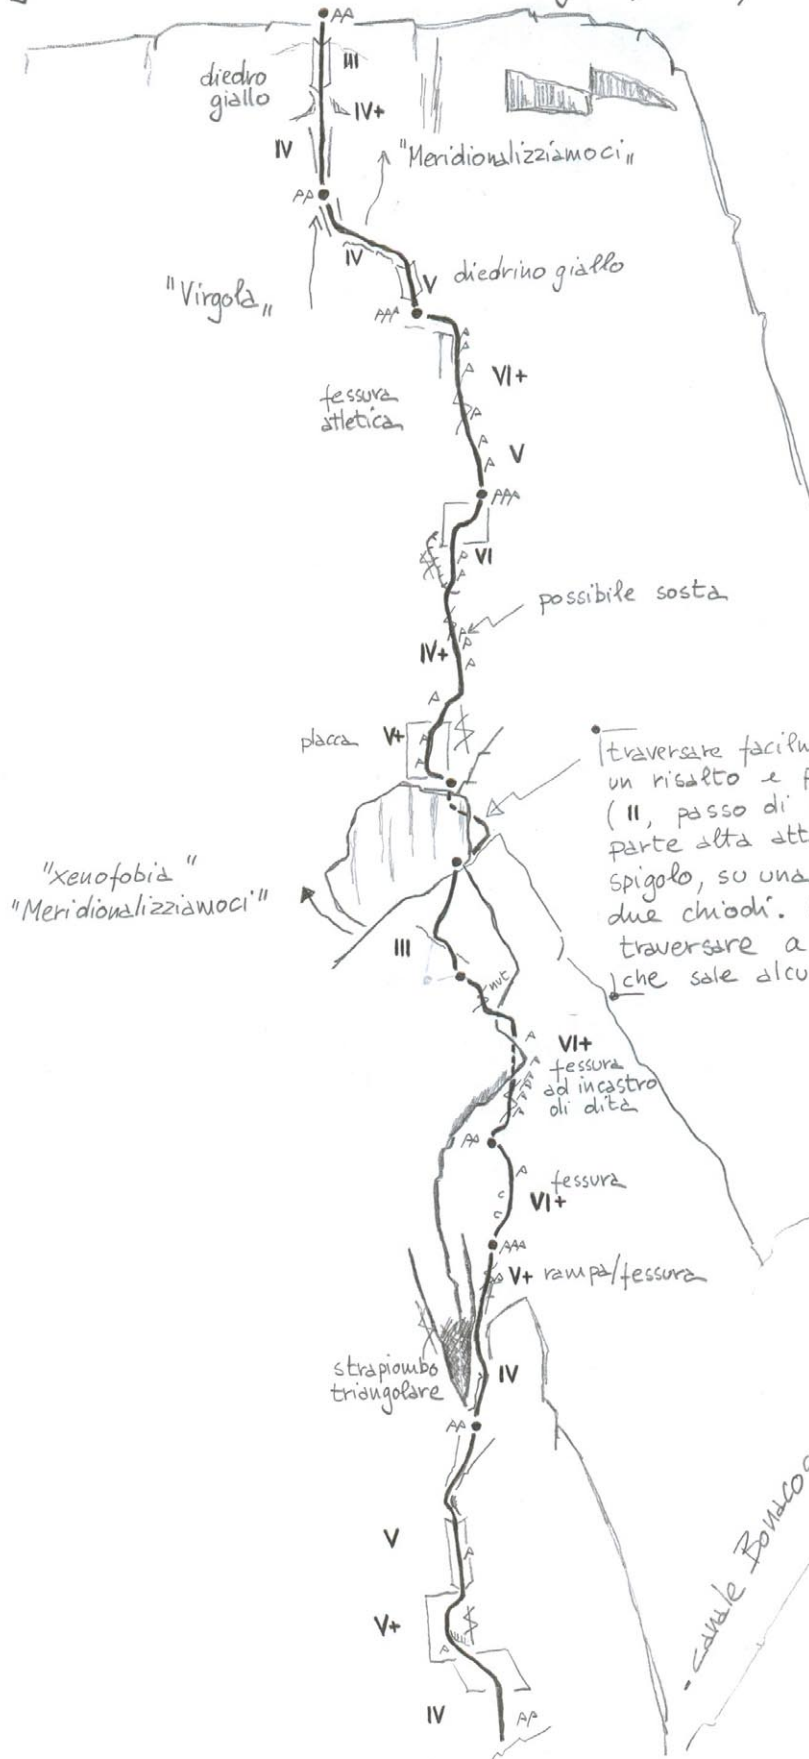 AA
III
diedro
giallo
IV+
IV
"Meridionalizziamoci"
AA
IV
"Virgola"
V
diedrino giallo
AAA
VI+
fessura
atletica
V
AAA
VI
possibile sosta
IV+
placca
V+
traversare facilm
un risalto e f
(II, passo di
parte alta att
spigolo, su una
due chiodi.
traversare a
che sale alcu
"Xenofobia"
"Meridionalizziamoci"
III
nut
VI+
fessura
ad incastro
di dita
AA
fessura
VI+
C
C
AAA
V+ rampa/fessura
strapiombo
triangolare
IV
AA
V
V+
canale Bonaco
IV
AA